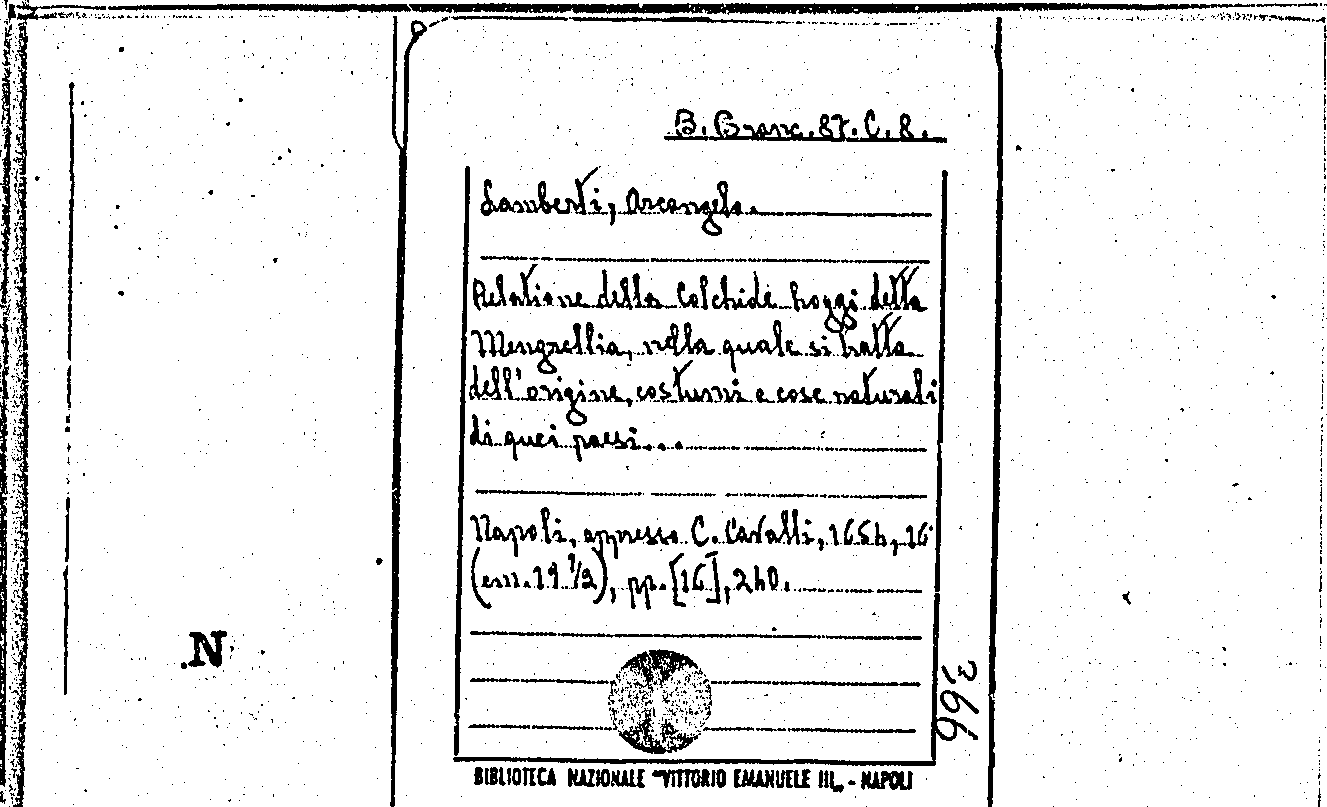 B. Branc. 87. C. 8.
Lamberti, Arcangelo.
Relatione della Colchide hoggi detta
Mengrellia, nella quale si tratta
dell'origine, costumi e cose naturali
di quei paesi...
Napoli, appresso C. Cavalli, 1654, 16°
(cm. 19 1/2), pp. [16], 240.
N
366
BIBLIOTECA NAZIONALE "VITTORIO EMANUELE III„ - NAPOLI